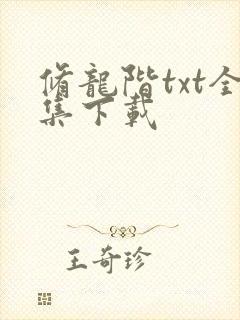 脩龍階txt全
集下載
王奇珍